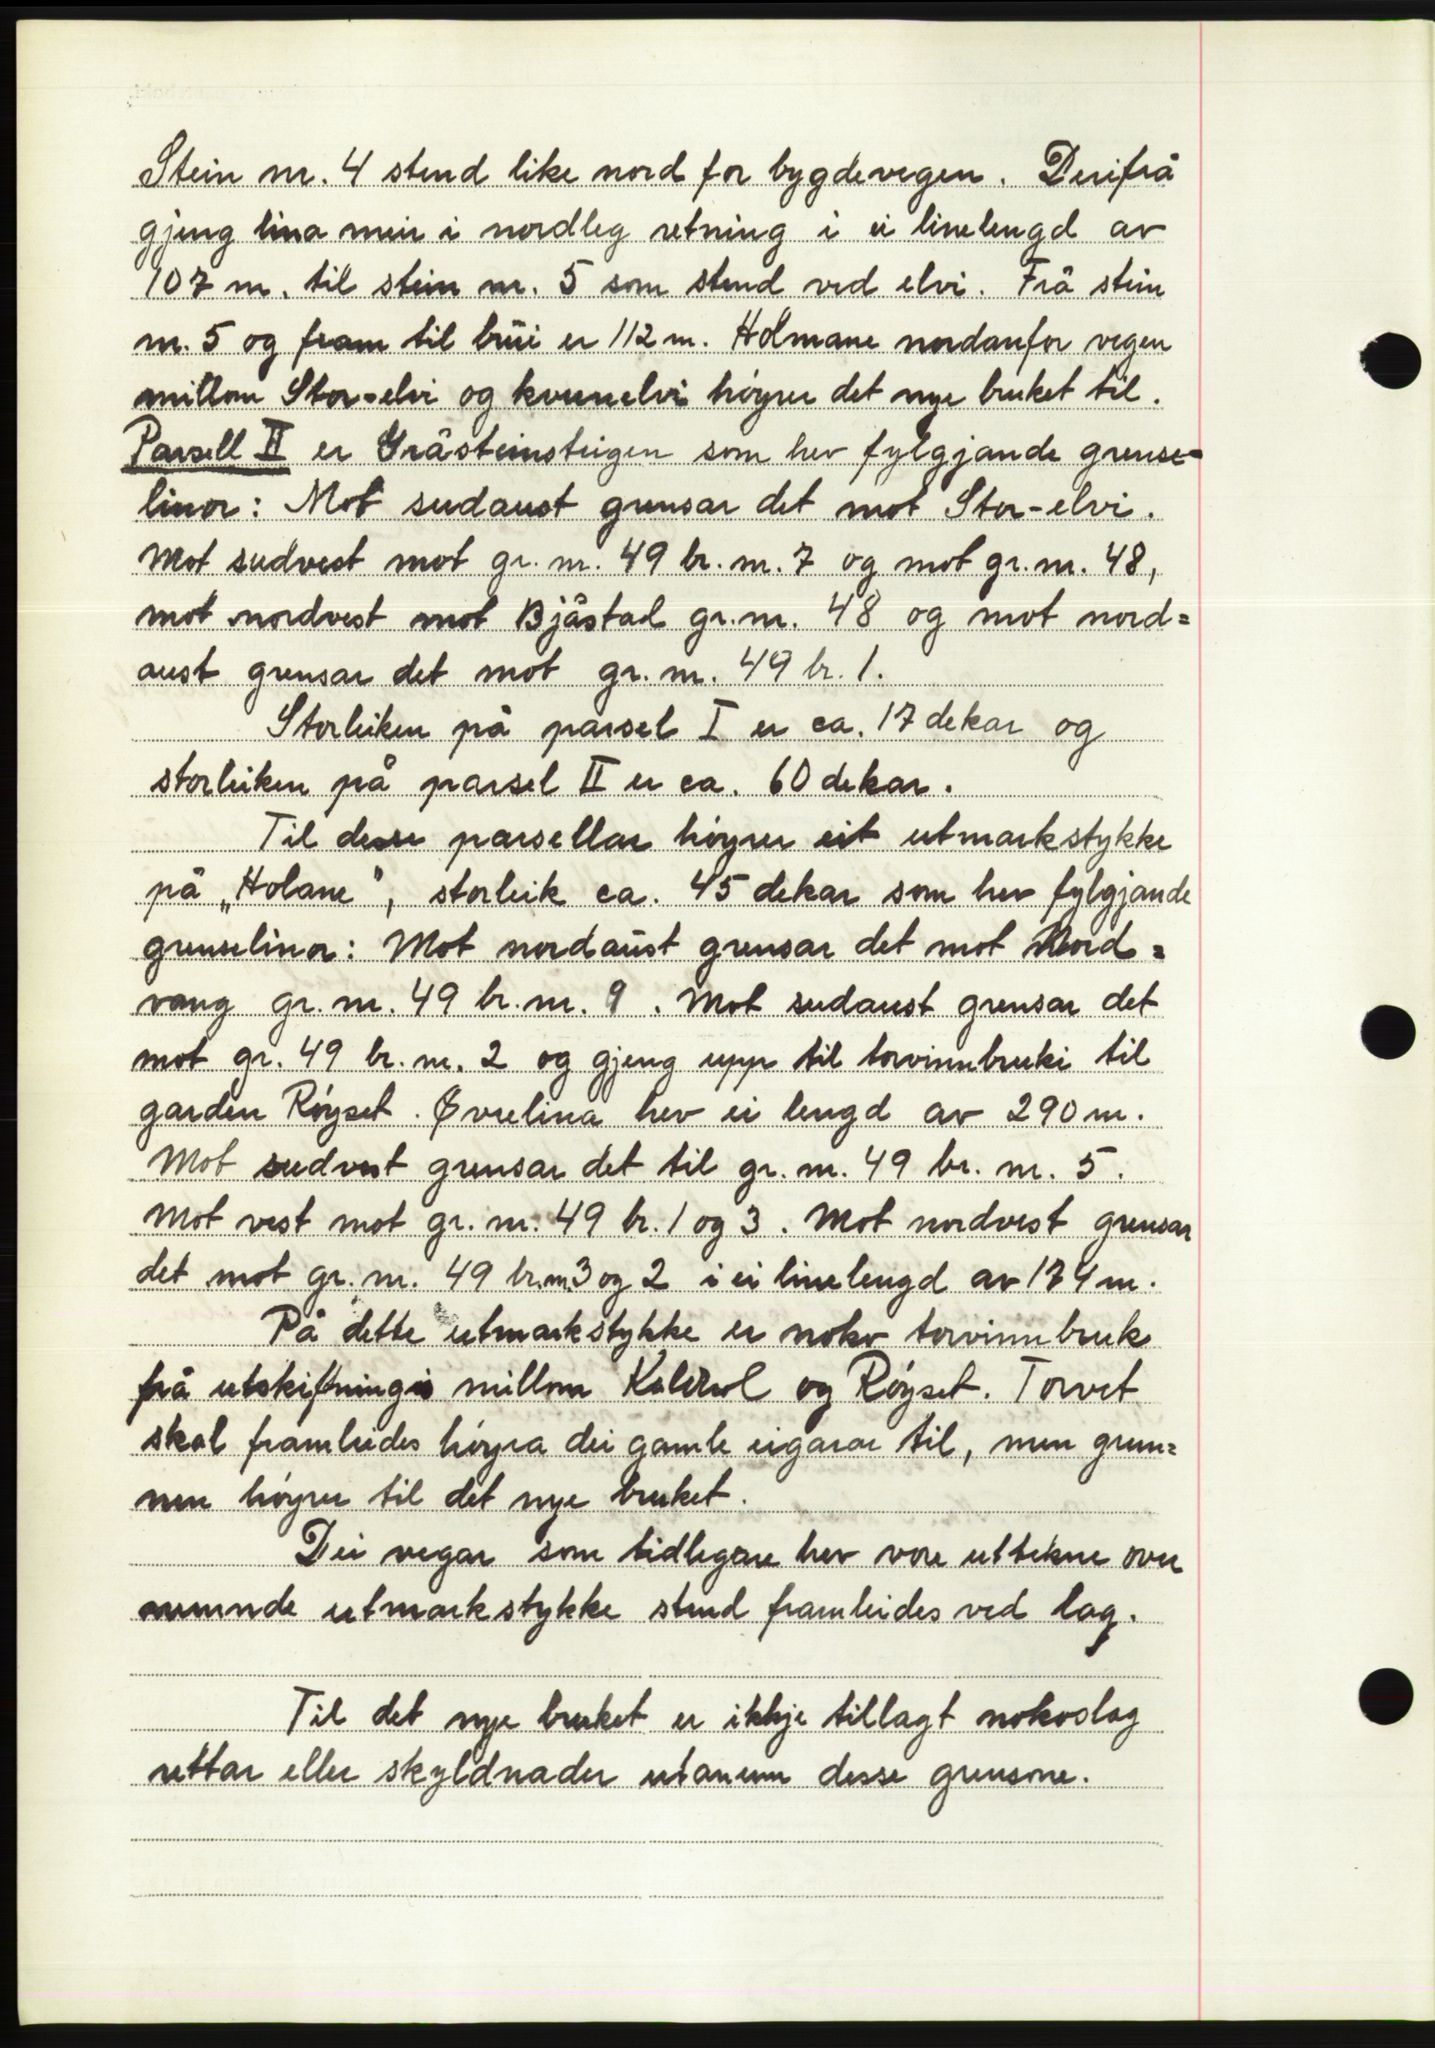 Stein nr. 4 stend like nord for bygdevegen. Derifrå
gjeng lina meir i nordleg retning i ei linelengd av
107 m. til stein nr. 5 som stend ved elvi. Frå stein
nr. 5 og fram til brúi er 112 m. Holmane nordanfor vegen
millom Stor-elvi og kvernelvi höyrer det nye bruket til.
Parsell II er Gråsteinsteigen som hev fylgjande grense=
linor: Mot sudaust grensar det mot Stor-elvi.
Mot sudvest mot gr. nr. 49 br. nr. 7 og mot gr. nr. 48,
mot nordvest mot Bjåstad gr. nr. 48 og mot nord=
aust grensar det mot gr. nr. 49 br. 1.
Storleiken på parsel I er ca. 17 dekar og
storleiken på parsel II er ca. 60 dekar.
Til desse parsellar höyrer eit utmarkstykke
på „Holane", storleik ca. 45 dekar som hev fylgjande
grenselinor: Mot nordaust grensar det mot Nord=
vang gr. nr. 49 br. nr. 9. Mot sudaust grensar det
mot gr. 49 br. nr. 2 og gjeng upp til torvinnbruki til
garden Röyset. Øvrelina hev ei lengd av 290 m.
Mot sudvest grensar det til gr. nr. 49 br. nr. 5.
Mot vest mot gr. nr. 49 br. 1 og 3. Mot nordvest grensar
det mot gr. nr. 49 br. nr. 3 og 2 i ei linelengd av 174 m.
På dette utmarkstykke er nokv torvinnbruk
frå utskiftningi millom Kaldhol og Röyset. Torvet
skal framleides höyra dei gamle eigarar til, men grun=
nen höyrer til det nye bruket.
Dei vegar som tidlegare hev vore uttekne over
nemnde utmarkstykke stend framleides ved lag.
Til det nye bruket er ikkje tillagt nokoslag
rettar eller skyldnader utanum desse grensone.